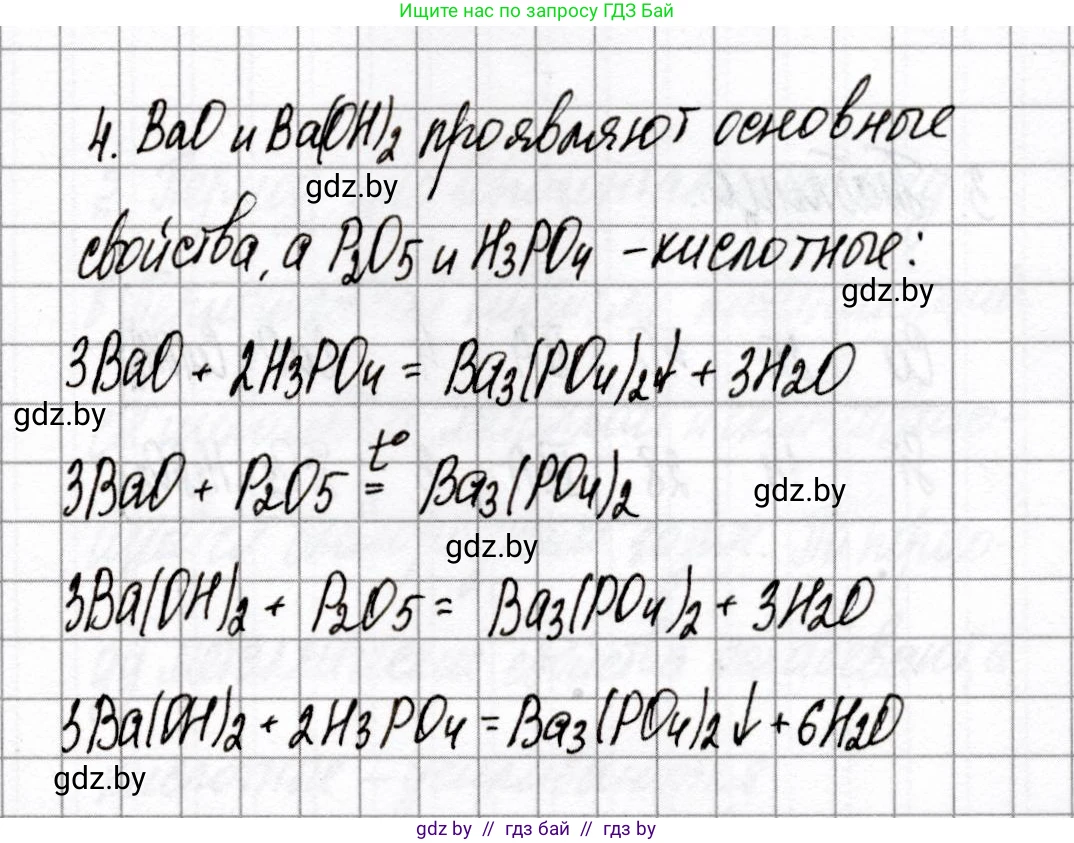 Ищите нас по запросу ГДЗ Бай
4. BaO и Ba(OH)₂ проявляют основные
gdz.by
свойства, а P₂O₅ и H₃PO₄ – кислотные:
gdz.by
3BaO + 2H₃PO₄ = Ba₃(PO₄)₂↓ + 3H₂O
gdz.by
3BaO + P₂O₅ =^{t°} Ba₃(PO₄)₂
gdz.by
gdz.by
3Ba(OH)₂ + P₂O₅ = Ba₃(PO₄)₂ + 3H₂O
3Ba(OH)₂ + 2H₃PO₄ = Ba₃(PO₄)₂↓ + 6H₂O
gdz.by
gdz.by // гдз бай // гдз by